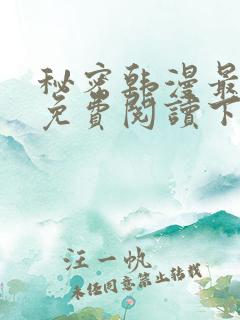 秘密韩漫最
免費閱讀下
汪一帆
未经同意禁止转载